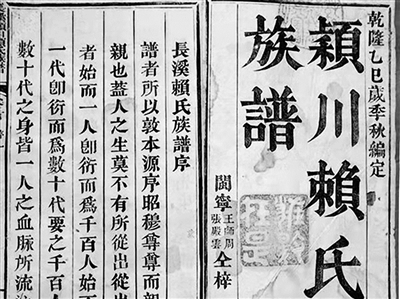 乾隆乙巳歲季秋編定
穎川賴氏
族譜
閩寧王師周張殿雲仝梓
長溪賴氏族譜序
譜者所以敦本源序昭穆尊尊而親
親也蓋人之生莫不有所從出從出
者始而一人卽衍而爲千百人始而
一代卽衍而爲數十代要之千百人
數十代之身皆一人之血脈所流